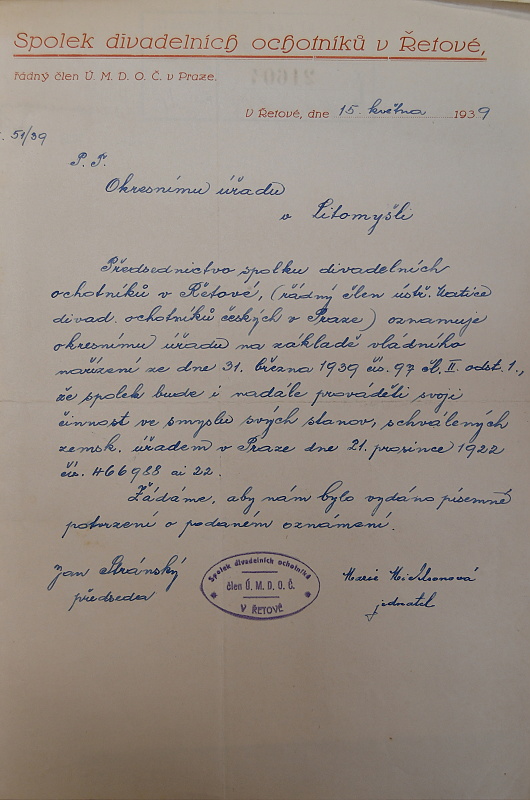 Spolek divadelních ochotníků v Řetové,
řádný člen Ú. M. D. O. Č. v Praze.
V Řetové, dne 15. května 1939
51/39
P. T.
Okresnímu úřadu
v Litomyšli
Předsednictvo spolku divadelních
ochotníků v Řetové, (řádný člen ústř. Matice
divad. ochotníků českých v Praze) oznamuje
okresnímu úřadu na základě vladního
nařízení ze dne 31. března 1939 čís. 97 čl. II. odst. 1.,
že spolek bude i nadále prováděti svoji
činnost ve smyslu svých stanov, schválených
zemsk. úřadem v Praze dne 21. prosince 1922
čís. 466988 ai 22.
Žádáme, aby nám bylo vydáno písemné
potvrzení o podaném oznámení.
Jan Stránský
předseda
Spolek divadelních ochotníků
člen Ú. M. D. O. Č.
V ŘETOVÉ
Marie
jednatel